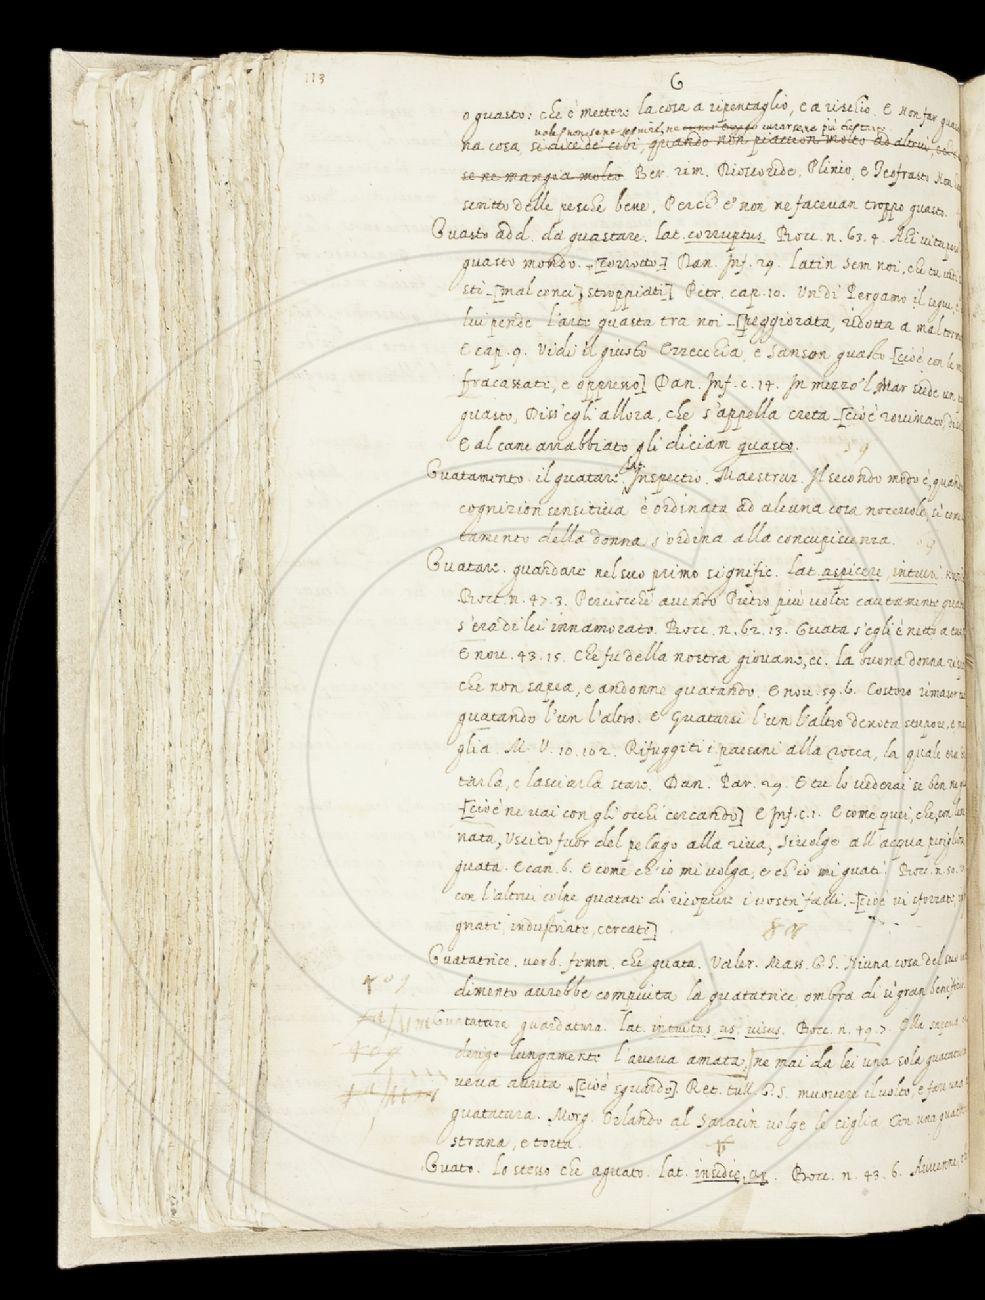 113
G
o guasto: che è mettere la cosa a ripentaglio, e a rischio. E Non far guasto
vale, non se ne servire, ne curarsene più che tanto
na cosa, si dice de' cibi, quando non piaccion molto ad altrui,
se ne mangia molto Ber. rim. Dioscoride, Plinio, e Teofrasto Non
scritto delle pesche bene, Perch' e' non ne facevan troppo guasto.
Guasto add. da guastare. lat. corruptus. Bocc. n. 63. 4. Ahi vitupero
guasto mondo. [corrotto] Dan. Inf. 29. Latin sem noi, che tu vedi
sti [mal conci, stroppiati] Petr. cap. 10. Un di Pergamo il segue,
lui pende l'arte guasta tra noi [peggiorata, ridotta a mal
E cap. 9. Vidi il giusto Ezzecchia, e Sanson guasto [cioè con le
fracassati, e oppresso] Dan. Inf. c. 14. In mezzo 'l Mar siede un
guasto, Diss'egli allora, che s'appella Creta [cioè rovinato,
E al cane arrabbiato gli diciam guasto.
Guatamento. il guatare. lat. Inspectio. Maestruz. Il secondo modo è, quando
cognizion sensitiva è ordinata ad alcuna cosa nocevole, si come
tamento della donna s'ordina alla concupiscenza.
Guatare. guardare nel suo primo signific. lat. aspicere, intueri
Bocc. n. 47. 3. Perciocchè avendo Pietro più volte cautamente
s'era di lei innamorato. Bocc. n. 62. 13. Guata s'egli è netto a tuo
E nov. 43. 15. Che fu della nostra giovane, ec. la buona donna
che non sapea, e andonne guatando. E nov. 59. 6. Costoro rimaser
guatando l'un l'altro. E Guatarsi l'un l'altro denota stupore,
glia. M. V. 10. 102. Rifuggiti i paesani alla rocca, la quale era
tarla, e lasciarla stare. Dan. Par. 29. E tu lo vederai se ben ne
[cioè ne vai con gli occhi cercando] E Inf. c. 1. E come quei, che, con
nata, Uscito fuor del pelago alla riva, Si volge all'acqua perigliosa
guata. E can. 6. E come ch'io mi volga, e ch'io mi guati. Bocc. n. 50.
con l'altrui colpe guatate di ricoprire i vostri falli. [cioè vi sforzate
gnati, industriate, cercati]
Guatatrice. verb. femm. che guata. Valer. Mass. G. S. Niuna cosa del suo
dimento avrebbe compiuta la guatatrice ombra di sì gran benificio
Guatatura guardatura. lat. intuitus, us, visus. Bocc. n. 49. 7.
derigo lungamente l'aveva amata, ne mai da lei una sola guatatura
veva avuta [cioè sguardo]. Ret. tull. G. S. muovere il volto, e fare una
guatatura. Morg. Orlando al Saracin volge le ciglia Con una
strana, e torta.
Guato. Lo stesso che aguato. lat. insidie, ar. Bocc. n. 43. 6. Avvenne,